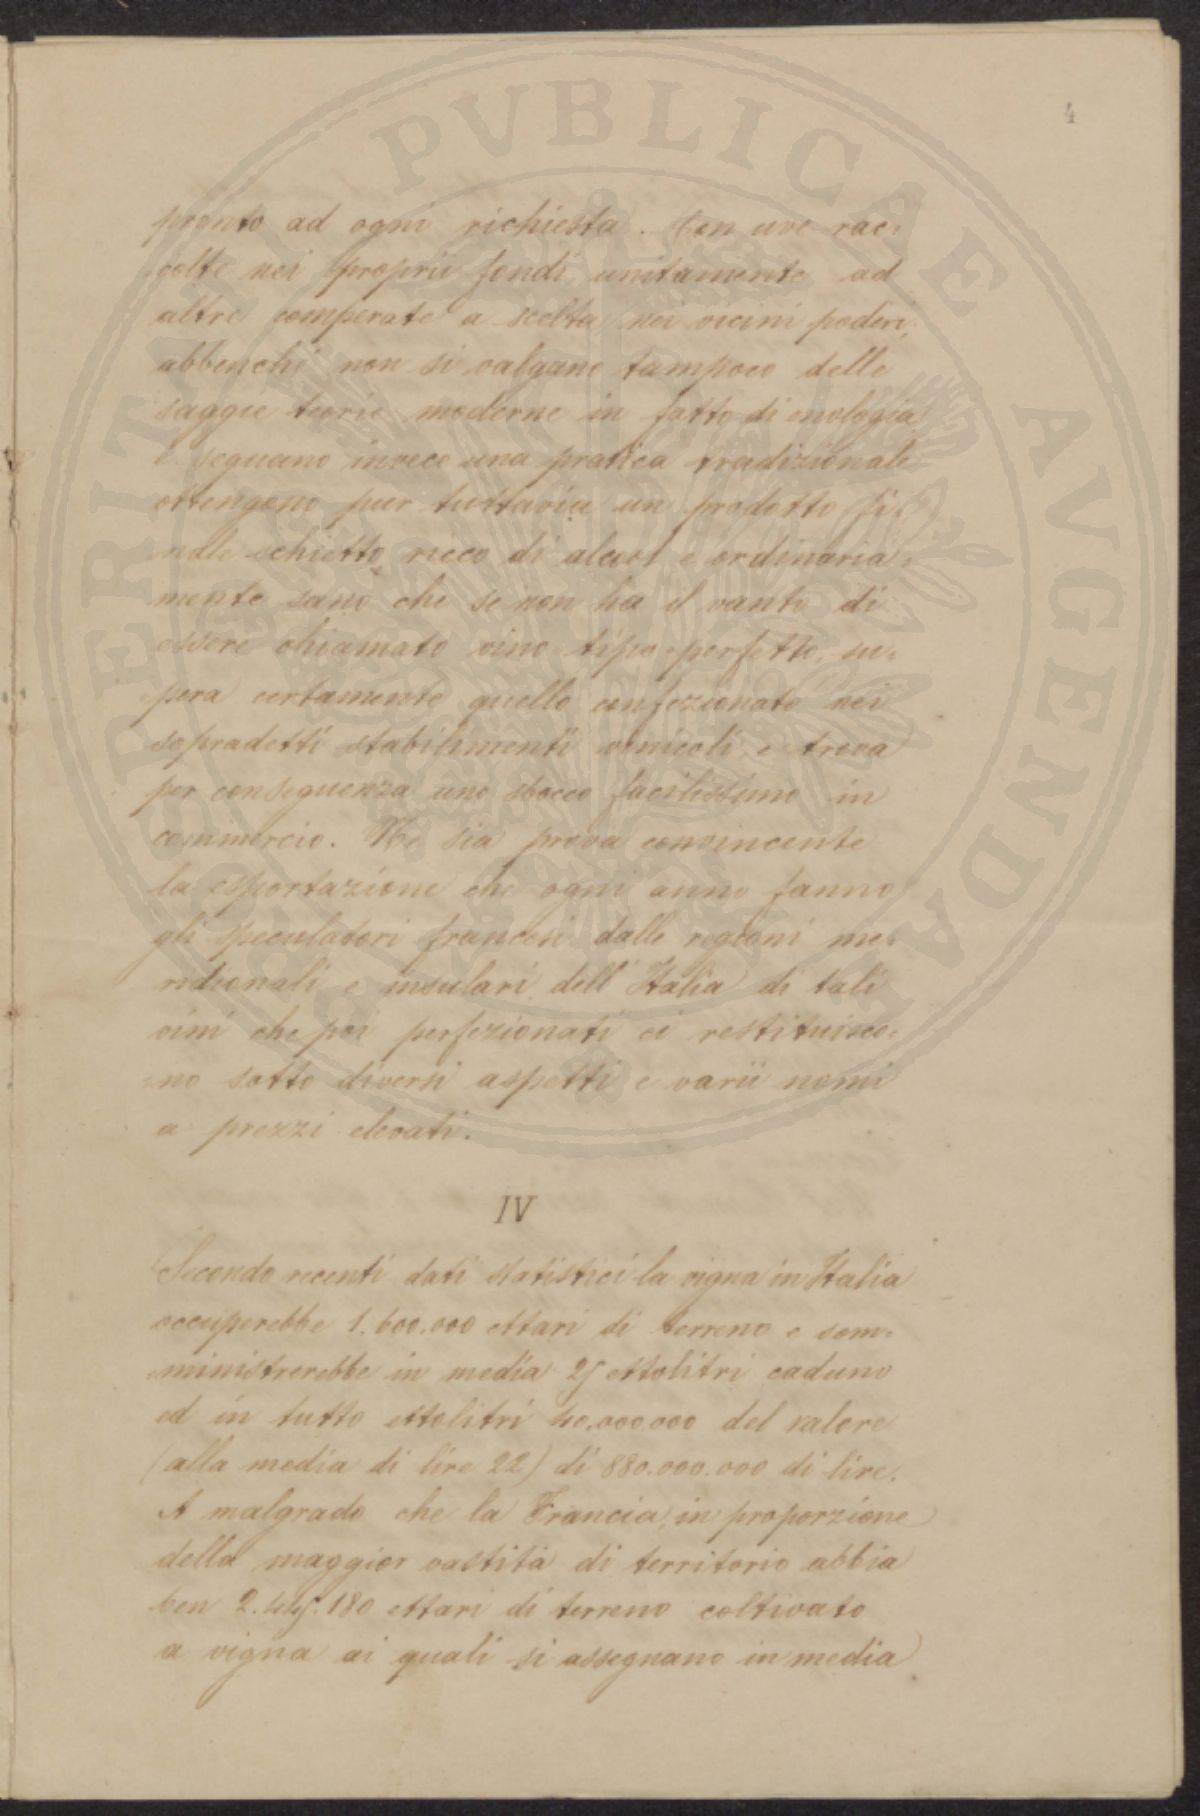 4
pronto ad ogni richiesta. Con uve rac=
colte nei proprii fondi, unitamente ad
altre comperate a scelta nei vicini poderi,
abbenchè non si valgano tampoco delle
saggie teorie moderne in fatto di enologia
e seguano invece una pratica tradizionale
ottengono pur tuttavia un prodotto fi=
=nale schietto, ricco di alcool e ordinaria=
mente sano che se non ha il vanto di
essere chiamato vino tipo perfetto, su=
=pera certamente quello confezionato nei
sopradetti stabilimenti vinicoli, e trova
per conseguenza uno sbocco facilissimo in
commercio. Ne sia prova convincente
la esportazione che ogni anno fanno
gli speculatori francesi dalle regioni me=
ridionali e insulari dell'Italia di tali
vini che poi perfezionati ci restituisco=
=no sotto diversi aspetti e varii nomi
a prezzi elevati.
IV
Secondo recenti dati statistici la vigna in Italia
occuperebbe 1.600.000 ettari di terreno e som=
=ministrerebbe in media 25 ettolitri caduno
ed in tutto ettolitri 40.000.000 del valore
(alla media di lire 22) di 880.000.000 di lire.
A malgrado che la Francia, in proporzione
della maggior vastità di territorio abbia
ben 2.445.180 ettari di terreno coltivato
a vigna ai quali si assegnano in media
PROSPERITATI PVBLICAE AVGENDAE